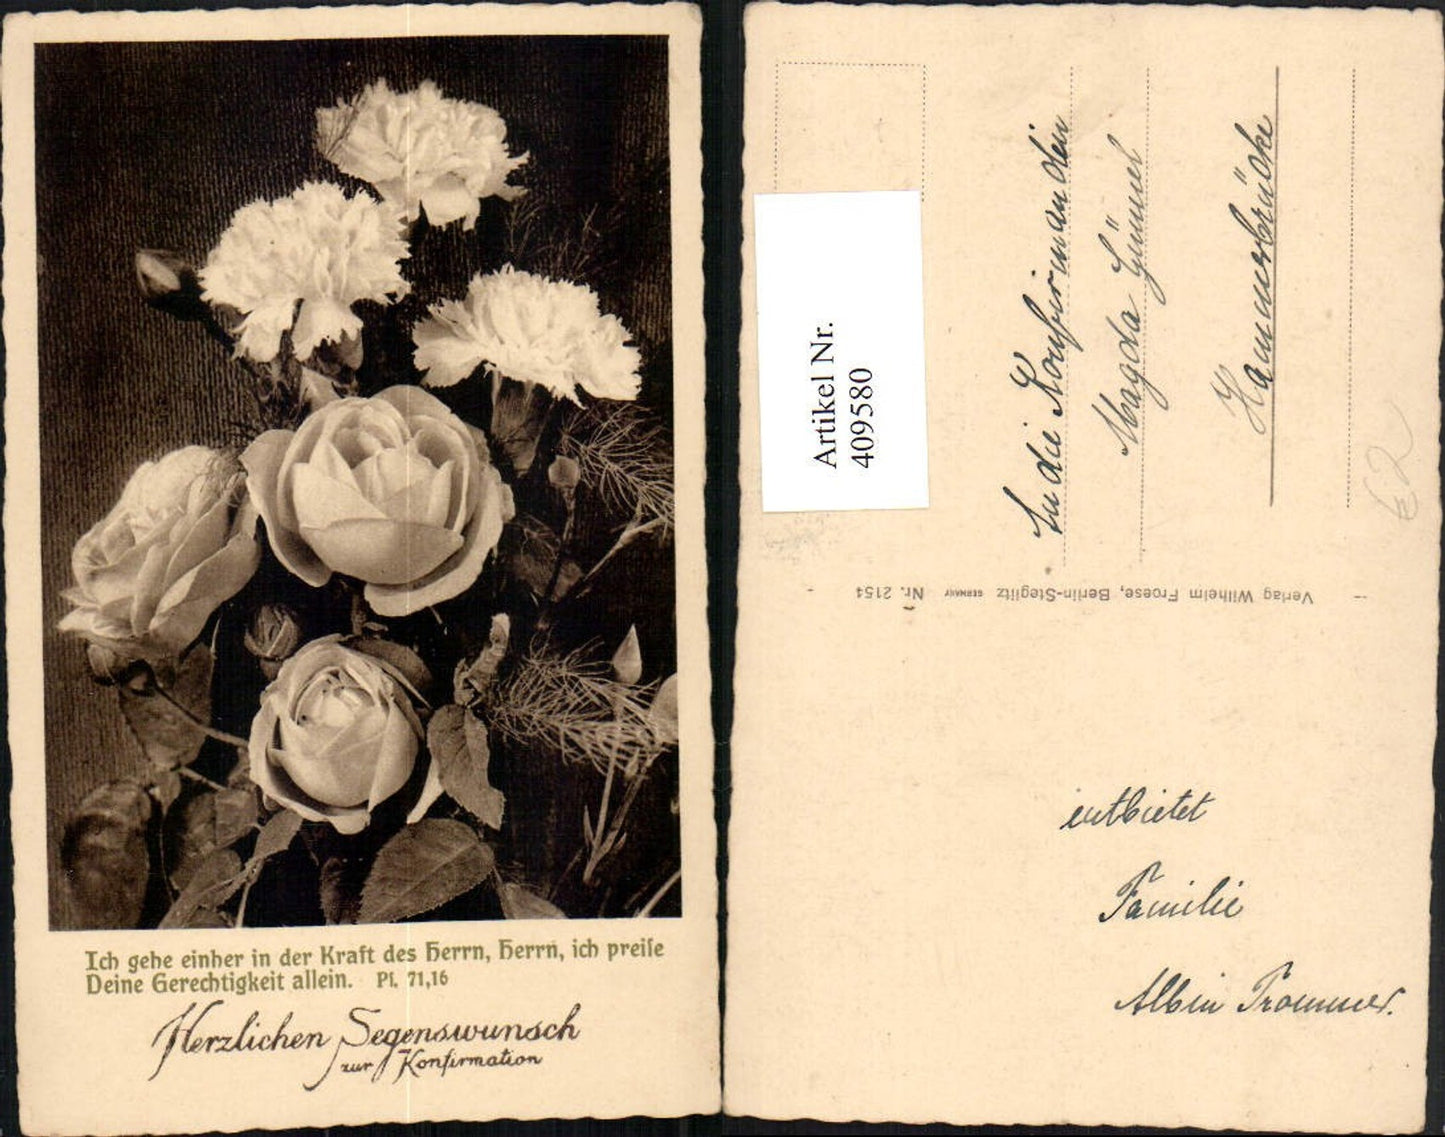 Ich gehe einher in der Kraft des Herrn, Herrn, ich preise
Deine Gerechtigkeit allein. Ps. 71,16
Herzlichen Segenswunsch
zur Konfirmation
Artikel Nr.
409580
An die Konfirmandin
Magda Gümmel
Hammerbrücke
€2
Verlag Wilhelm Froese, Berlin-Steglitz GERMANY Nr. 2154
entbietet
Familie
Albin Trommer.